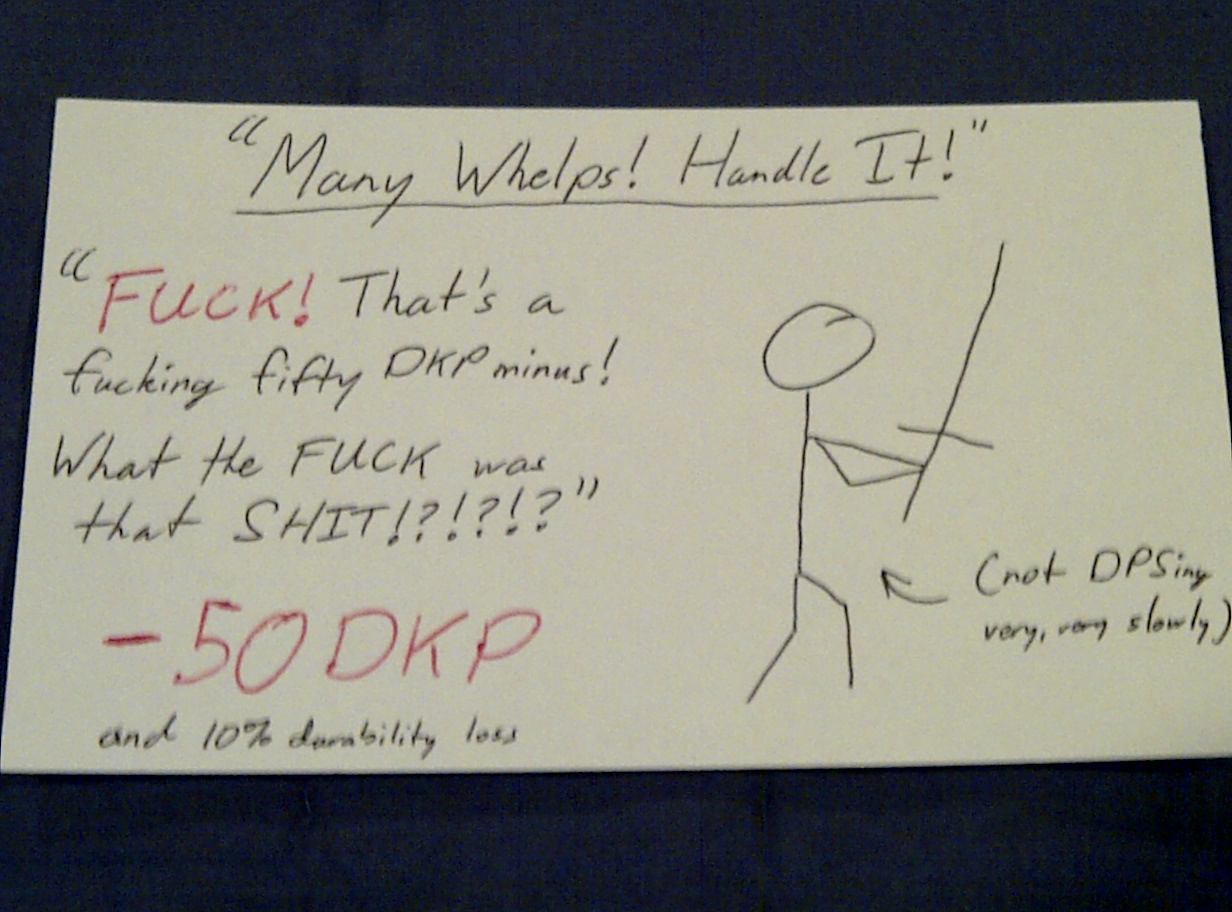 "Many Whelps! Handle It!"
"FUCK! That's a
fucking fifty DKP minus!
What the FUCK was
that SHIT!?!?!?"
(not DPSing
very, very slowly)
-50 DKP
and 10% durability loss